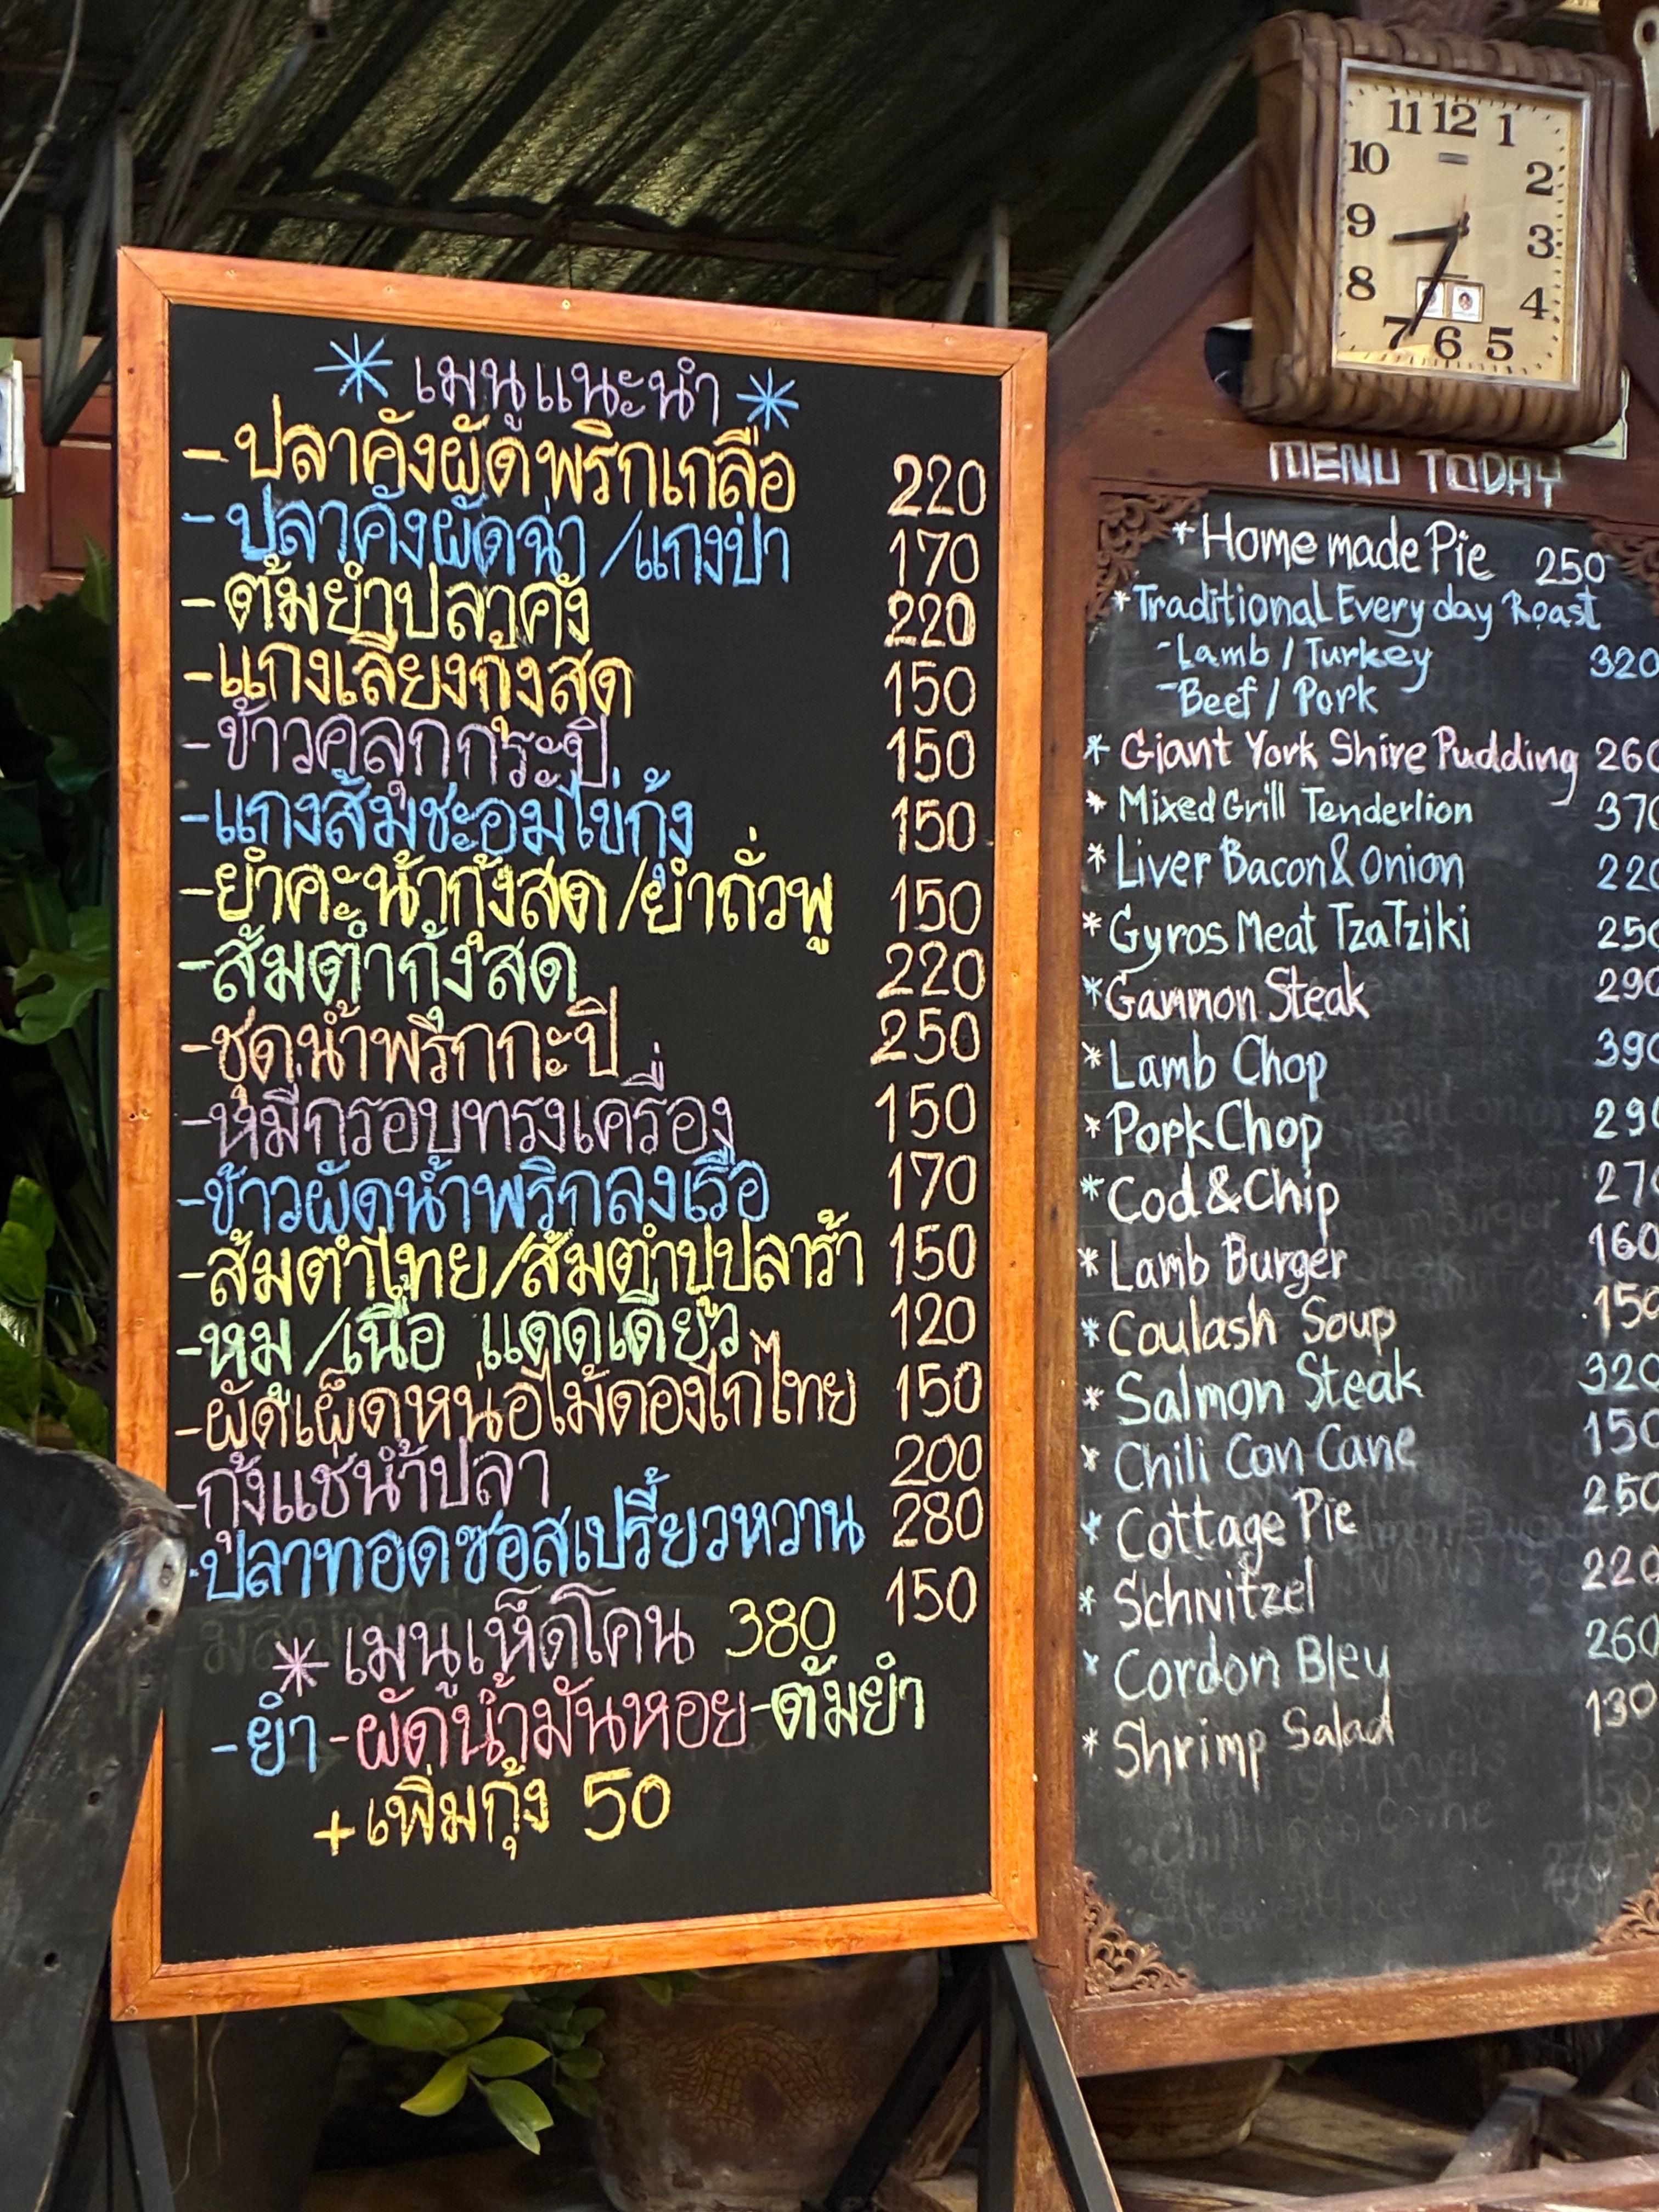 * เมนูแนะนำ *
- ปลาคังผัดพริกเกลือ 220
- ปลาคังผัดฉ่า /แกงป่า 170
- ต้มยำปลาคัง 220
- แกงเลียงกุ้งสด 150
- ข้าวคลุกกระปิ 150
- แกงส้มชะอมไข่กุ้ง 150
- ยำคะน้ากุ้งสด/ยำถั่วพู 150
- ส้มตำกุ้งสด 220
- ชุดน้ำพริกกะปิ 250
- หมี่กรอบทรงเครื่อง 150
- ข้าวผัดน้ำพริกลงเรือ 170
- ส้มตำไทย/ส้มตำปูปลาร้า 150
- หมู/เนื้อ แดดเดียว 120
- ผัดเผ็ดหน่อไม้ดองไก่ไทย 150
- กุ้งแช่น้ำปลา 200
- ปลาทอดซอสเปรี้ยวหวาน 280
150
* เมนูเห็ดโคน 380
- ยำ - ผัดน้ำมันหอย - ต้มยำ
+ เพิ่มกุ้ง 50
11 12 1
10 2
9 3
8 4
7 6 5
MENU TODAY
* Home made Pie 250
* Traditional Every day Roast
- Lamb / Turkey 320
- Beef / Pork
* Giant York Shire Pudding 260
* Mixed Grill Tenderlion 370
* Liver Bacon & Onion 220
* Gyros Meat TzaTziki 250
* Gammon Steak 290
* Lamb Chop 390
* Pork Chop 290
* Cod & Chip 270
* Lamb Burger 160
* Coulash Soup 150
* Salmon Steak 320
* Chili Con Cane 150
* Cottage Pie 250
* Schnitzel 220
* Cordon Bleu 260
* Shrimp Salad 130